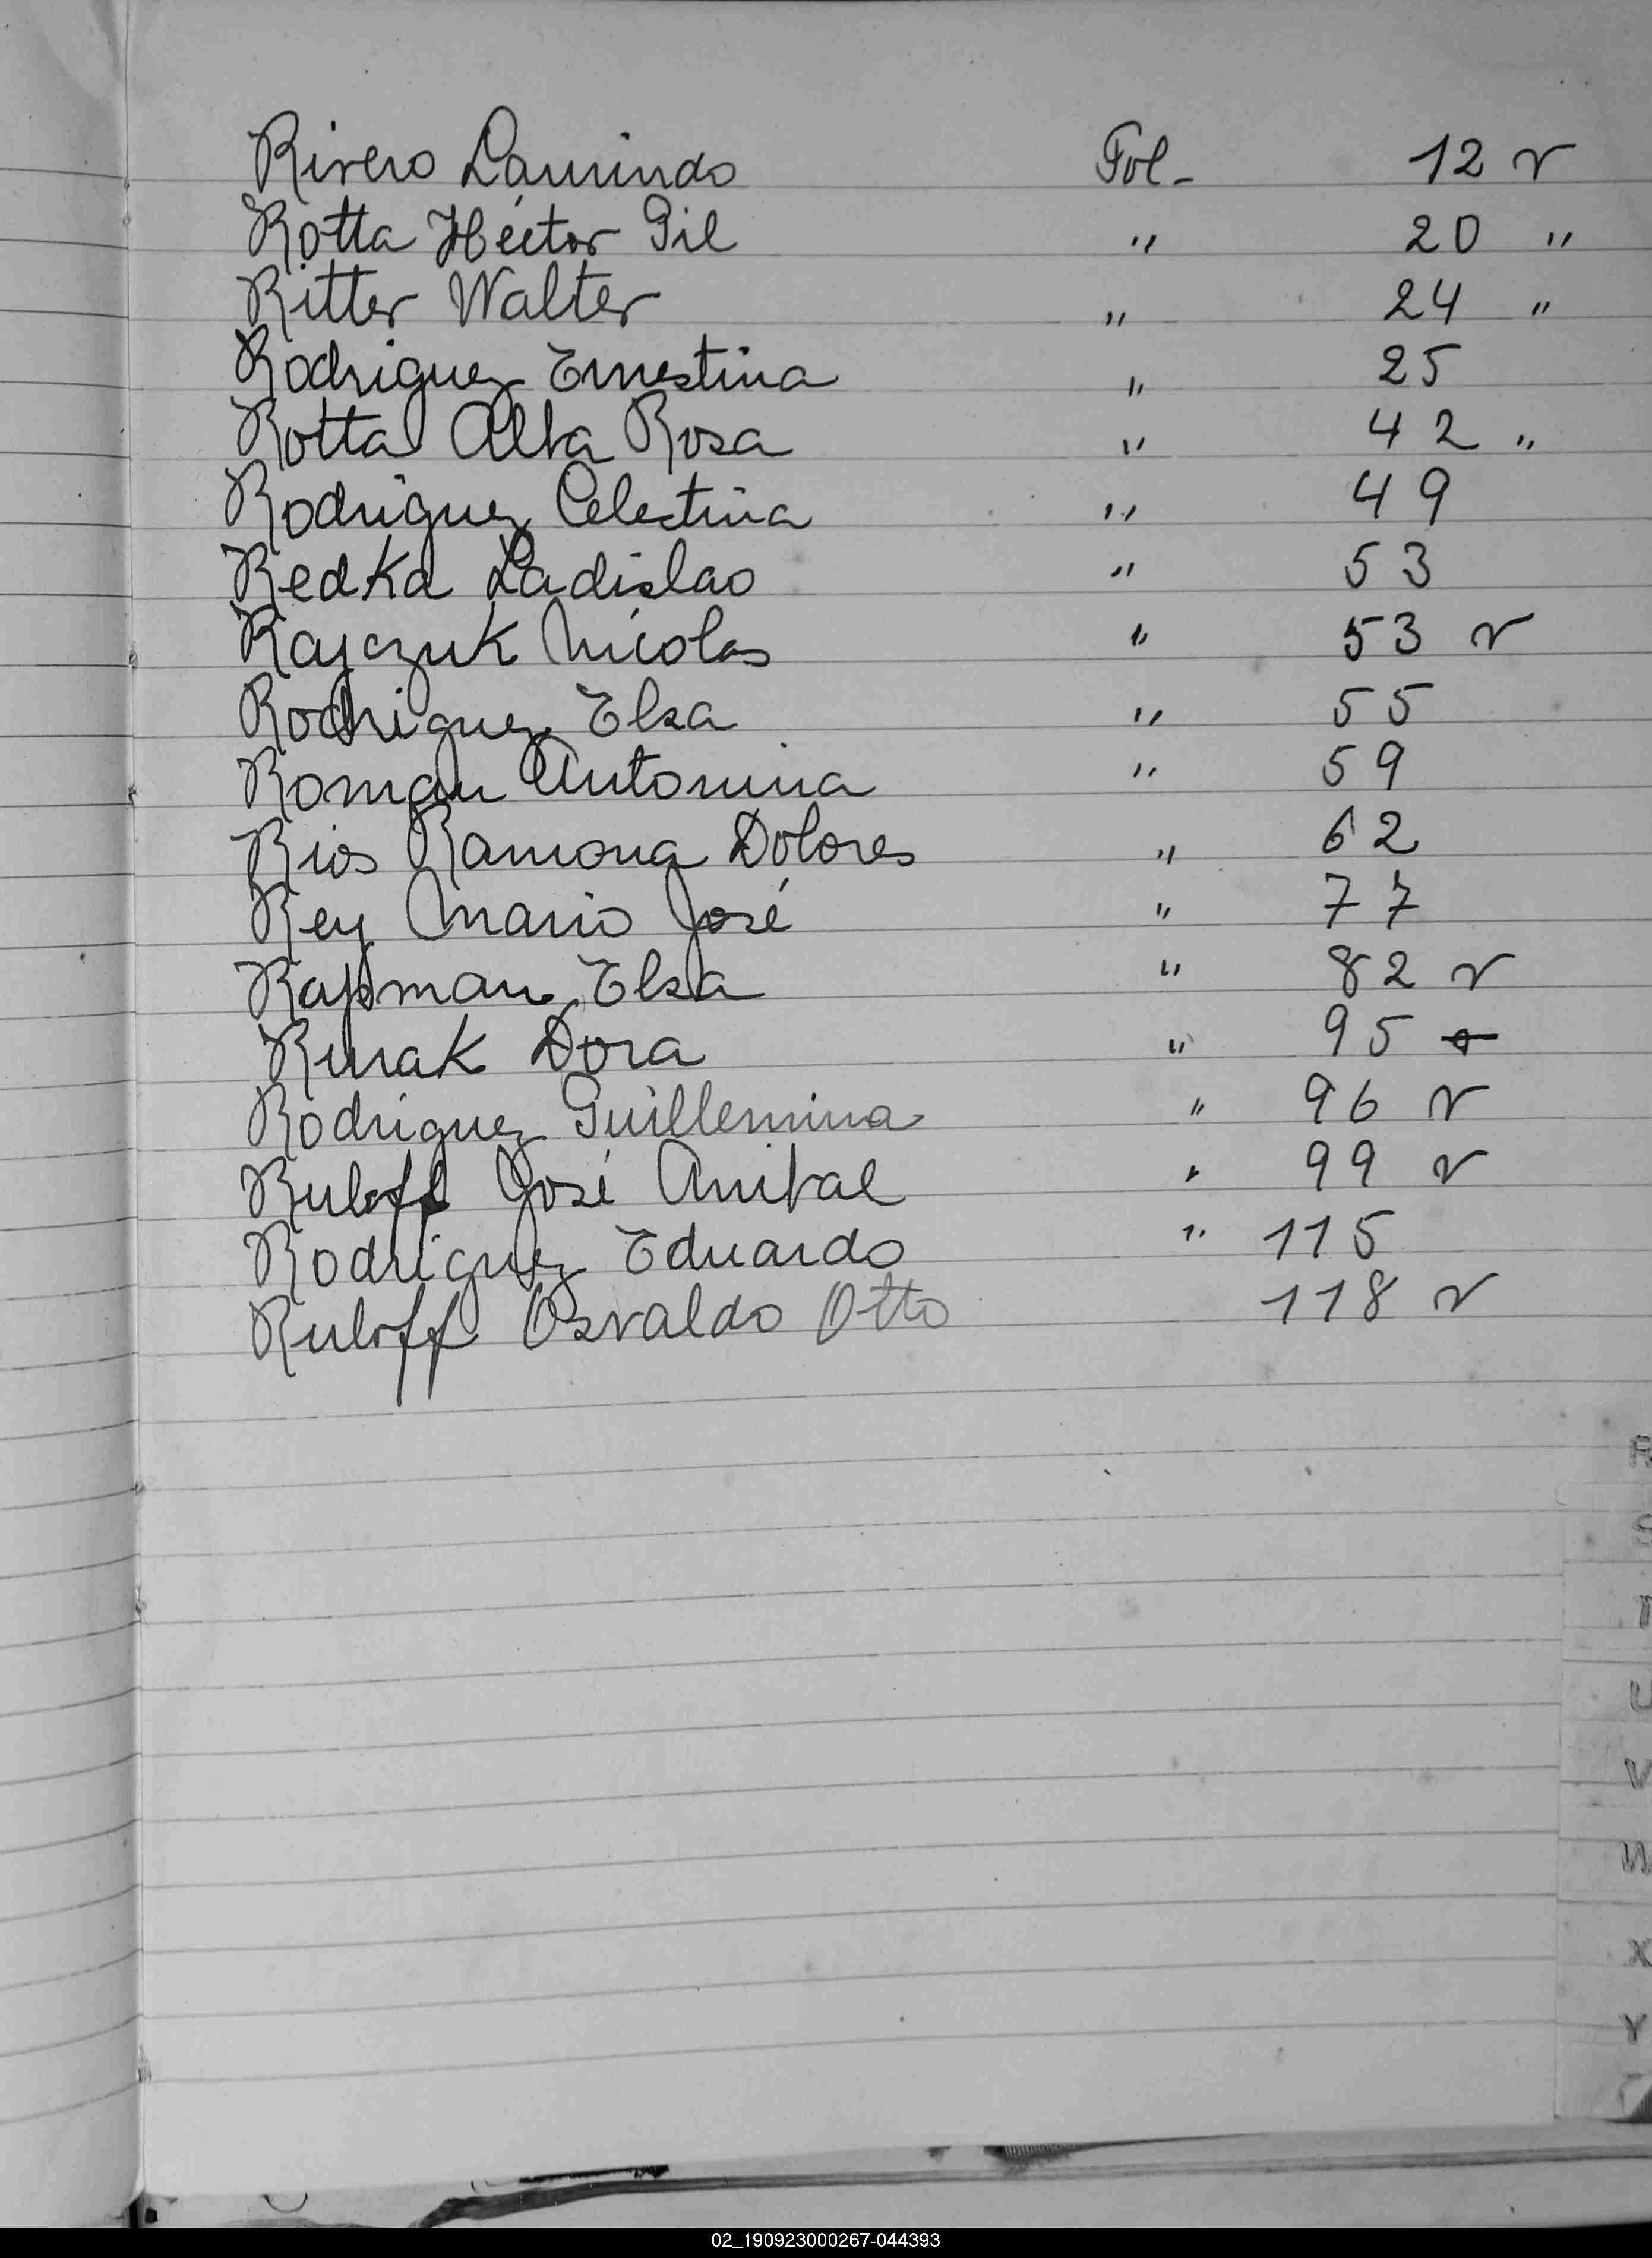 Rivero Laurindo Fol- 12 v
Rotta Héctor Gil " 20 "
Ritter Walter " 24 "
Rodriguez Ernestina " 25
Rotta Alba Rosa " 42 "
Rodriguez Celestina " 49
Redka Ladislao " 53
Rajczuk Nicolas " 53 v
Rodriguez Elsa " 55
Roman Antonina " 59
Rios Ramona Dolores " 62
Rey Mario José " 77
Elsa " 82 v
Dora " 95
Rodriguez Guillermina " 96 v
Ruloff José Anibal " 99 v
Rodriguez Eduardo " 115
Ruloff Osvaldo Otto 118 v
R
S
T
U
V
W
X
Y
02_190923000267-044393